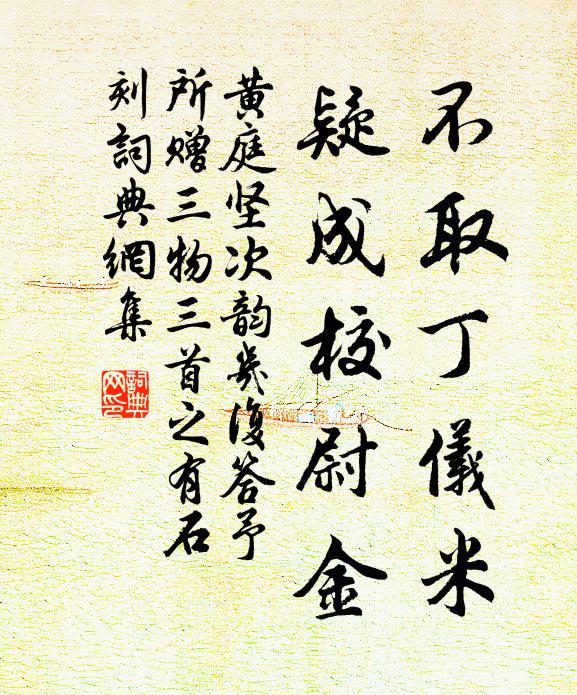 不取丁儀米
疑成校尉金
黄庭坚次韵幾復答予
所赠三物三首之有石
刻詞典網集
詞典
网印